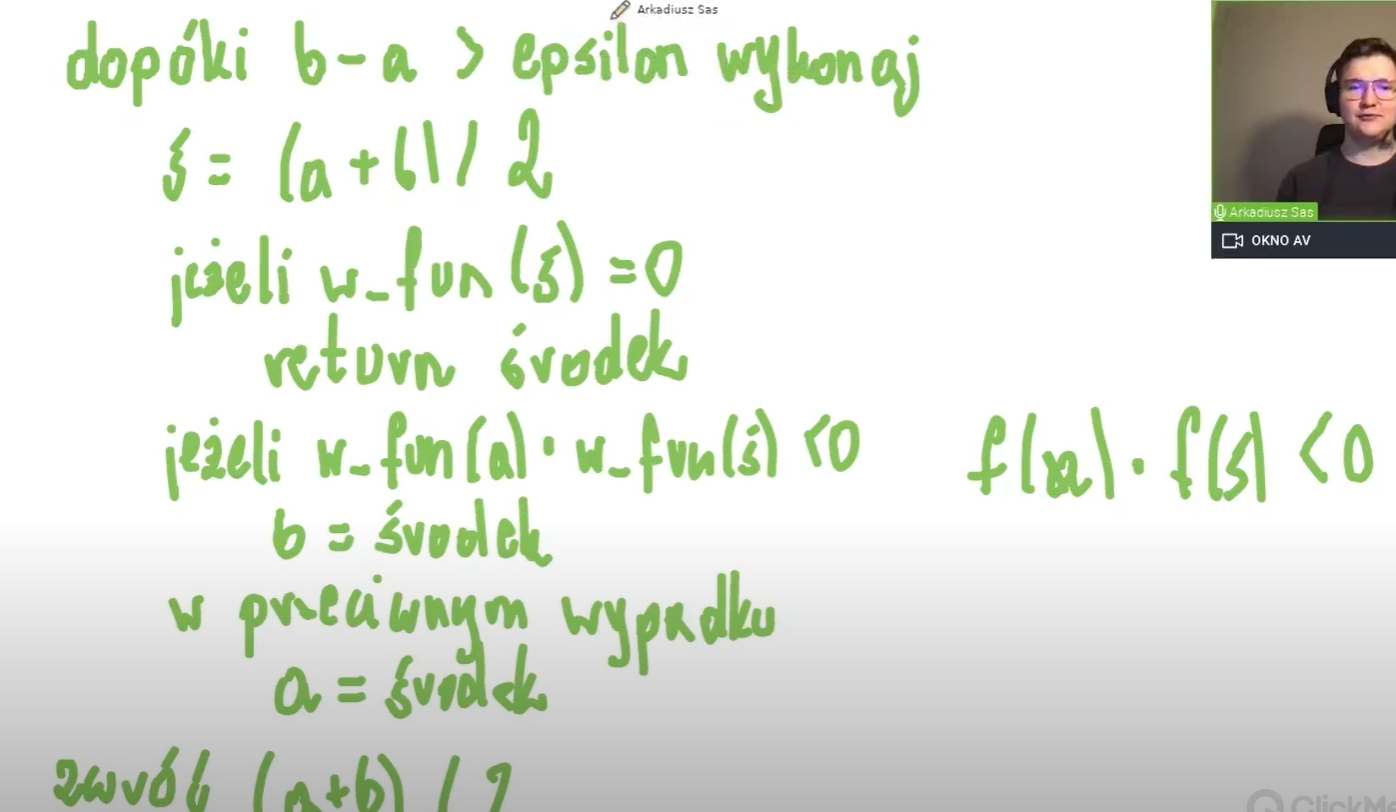 Arkadiusz Sas
dopóki b-a > epsilon wykonaj
ś = (a+b) / 2
jeżeli w_fun(ś) = 0
return środek
jeżeli w_fun(a) · w_fun(ś) < 0
f(a) · f(ś) < 0
b = środek
w przeciwnym wypadku
a = środek
zwróć (a+b) / 2
Arkadiusz Sas
OKNO AV